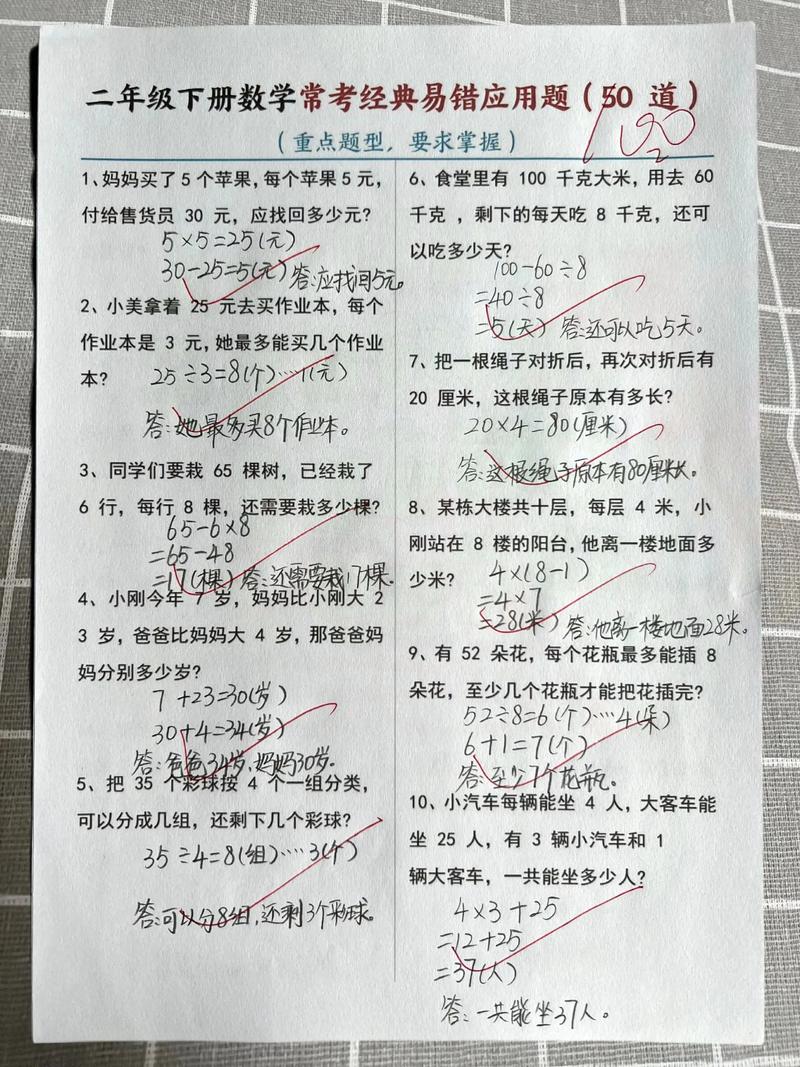 二年级下册数学常考经典易错应用题（50 道）
100
（重点题型，要求掌握）
1、妈妈买了 5 个苹果，每个苹果 5 元，
付给售货员 30 元，应找回多少元？
5×5=25(元)
30-25=5(元) 答:应找回5元。
2、小美拿着 25 元去买作业本，每个
作业本是 3 元,她最多能买几个作业
本？ 25÷3=8(个)……1(元)
答:她最多买8个作业本。
3、同学们要栽 65 棵树，已经栽了
6 行，每行 8 棵，还需要栽多少棵?
65-6×8
=65-48
=17(棵) 答:还需要栽17棵.
4、小刚今年 7 岁，妈妈比小刚大 2
3 岁，爸爸比妈妈大 4 岁，那爸爸妈
妈分别多少岁？
7+23=30(岁)
30+4=34(岁)
答:爸爸34岁,妈妈30岁.
5、把 35 个彩球按 4 个一组分类，
可以分成几组，还剩下几个彩球？
35÷4=8(组)……3(个)
答:可以分8组,还剩3个彩球。
6、食堂里有 100 千克大米，用去 60
千克 ，剩下的每天吃 8 千克，还可
以吃多少天？
100-60÷8
=40÷8
=5(天) 答:还可以吃5天。
7、把一根绳子对折后，再次对折后有
20 厘米，这根绳子原本有多长？
20×4=80(厘米)
答:这根绳子原本有80厘米长。
8、某栋大楼共十层，每层 4 米，小
刚站在 8 楼的阳台,他离一楼地面多
少米？ 4×(8-1)
=4×7
=28(米) 答:他离一楼地面28米。
9、有 52 朵花，每个花瓶最多能插 8
朵花，至少几个花瓶才能把花插完？
52÷8=6(个)……4(朵)
6+1=7(个)
答:至少7个花瓶。
10、小汽车每辆能坐 4 人，大客车能
坐 25 人，有 3 辆小汽车和 1
辆大客车，一共能坐多少人?
4×3+25
=12+25
=37(人)
答:一共能坐37人。